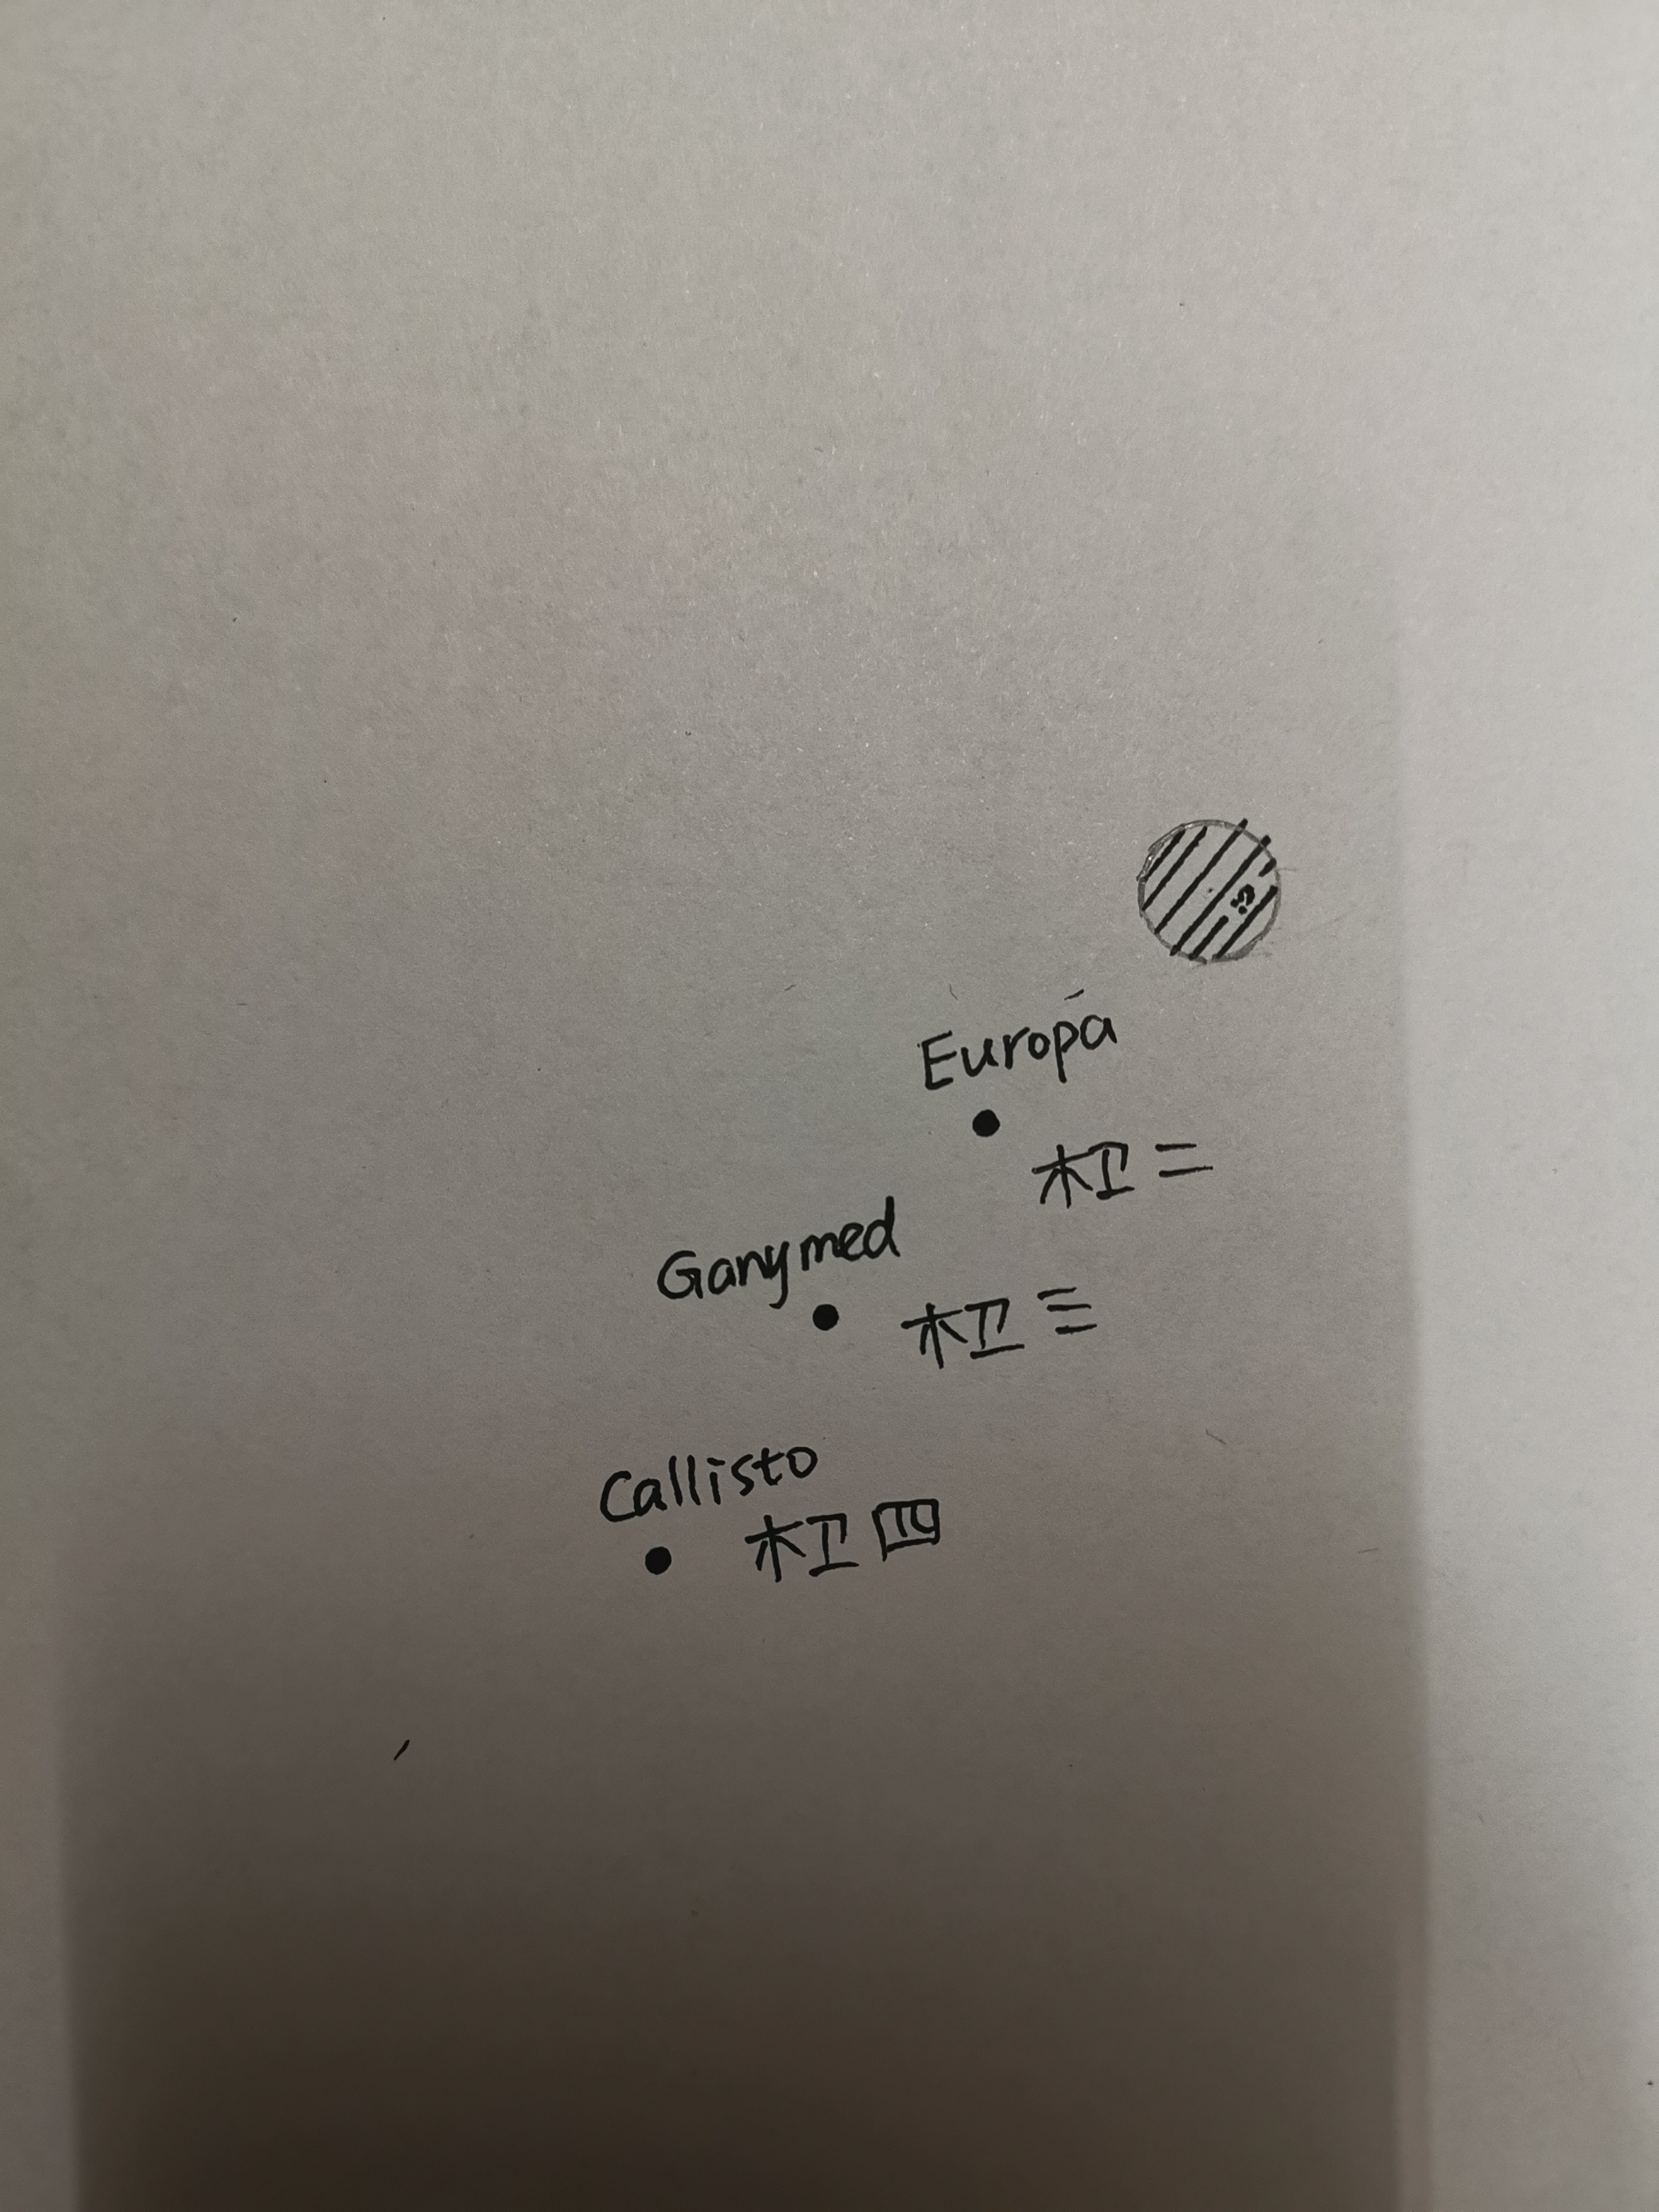 Europa
木卫二
Ganymed
木卫三
Callisto
木卫四